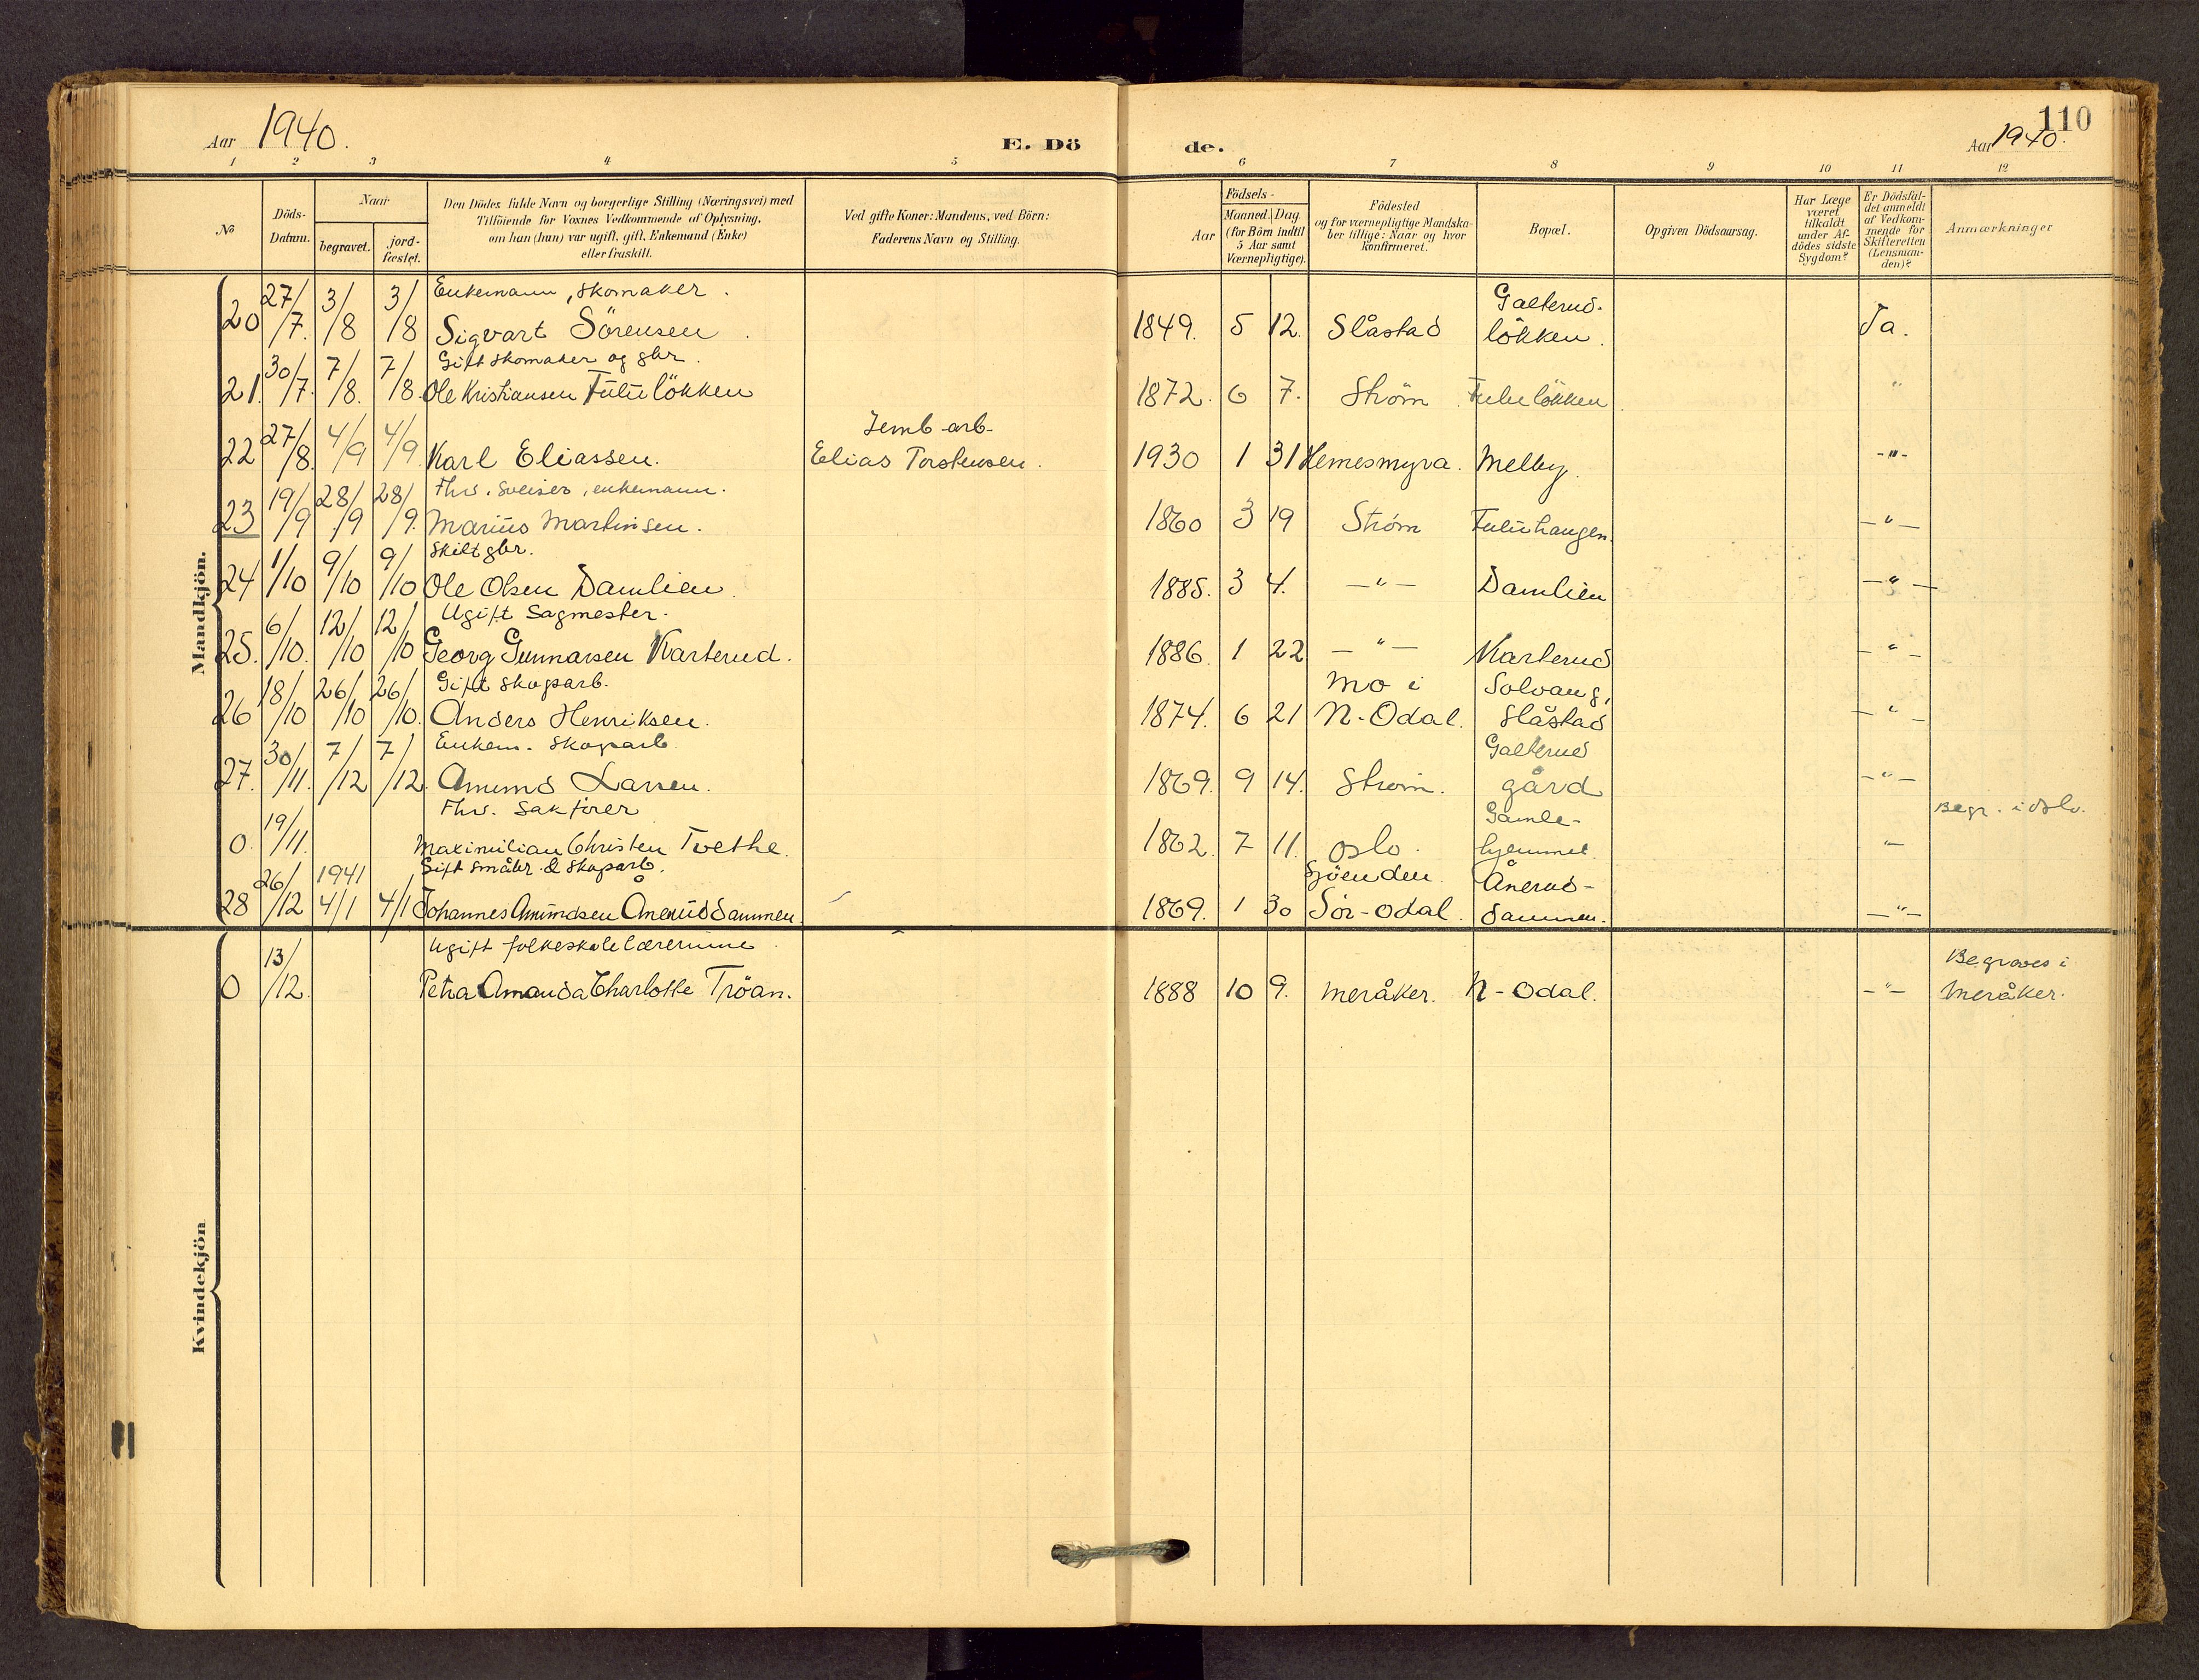 110
Aar 1940.
E. Dö
de.
Aar 1940.
1 2 3 4 5 6 7 8 9 10 11 12
No
Döds-
Datum.
Naar
begravet.
jord-
fæstet.
Den Dödes fulde Navn og borgerlige Stilling (Næringsvei) med
Tilföiende for Voxnes Vedkommende af Oplysning,
om han (hun) var ugift, gift, Enkemand (Enke)
eller fraskilt.
Ved gifte Koner: Mandens, ved Börn:
Faderens Navn og Stilling.
Födsels-
Aar
Maaned. Dag.
(for Börn indtil
5 Aar samt
Værnepligtige).
Födested
og for værnepligtige Mandska-
ber tillige: Naar og hvor
konfirmeret.
Bopæl.
Opgiven Dödsaarsag.
Har Læge
været
tilkaldt
under Af-
dödes sidste
Sygdom?
Er Dödsfal-
det anmeldt
af Vedkom-
mende for
Skifteretten
(Lensman-
den)?
Anmærkninger
Mandkjön.
Enkemann, skomaker.
Galterud-
20 27/7. 3/8 3/8 Sigvart Sörensen 1849. 5 12. Slåstad lökken. Ja.
Gift skomaker og gbr.
21. 30/7. 7/8. 7/8. Ole Kristiansen Fululökken 1872. 6 7. Ström Fululökken "
Jernb-arb-
22 27/8. 4/9 4/9 Karl Eliassen. Elias Torstensen. 1930 1 31 Hemesmyra. Melby. -"-
Fhv. sveiser, enkemann.
23 19/9 28/9 28/9. Marius Martinsen. 1860 3 19 Ström Fuluhaugen. -"-
Skilt gbr.
24 1/10 9/10 9/10 Ole Olsen Damlien. 1885. 3 4. -"- Damlien -"-
Ugift Sagmester.
25. 6/10. 12/10 12/10 Georg Gunnarsen Karterud. 1886. 1 22 -"- Karterud -"-
Gift skogsarb. Mo i Solvang,
26 18/10 26/10 26/10. Anders Henriksen. 1874. 6 21 N-Odal. Slåstad -"-
Enkem. Skogsarb. Galterud
27. 30/11. 7/12 7/12. Amund Larsen. 1869. 9 14. Ström. gård -"-
Fhv. Sakförer Gamle- Begr. i Oslo.
0. 19/11. Maximilian Christen Tvethe. 1862. 7 11. Oslo. hjemmet. "
1941 Gift småbr. & skogsarb. Sjöenden Ånerud-
28 26/12 4/1 4/1 Johannes Amundsen Ånerüddammen. 1869. 1 30 Sör-Odal. dammen. -"-
Kvindekjön
Ugift folkeskolelærerinne Begraves i
0 13/12. Petra Amanda Charlotte Tröan. 1888 10 9. Meråker. N-Odal. -"- Meråker.